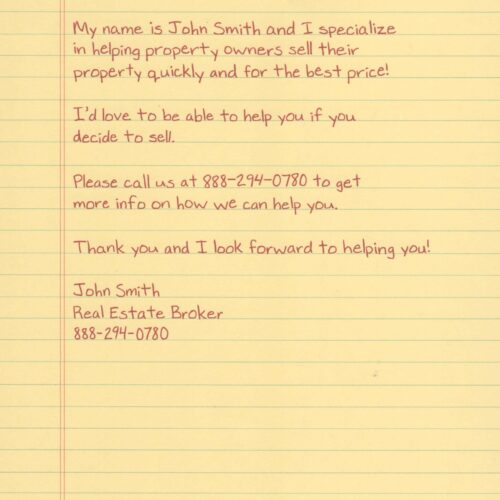 My name is John Smith and I specialize
in helping property owners sell their
property quickly and for the best price!
I'd love to be able to help you if you
decide to sell.
Please call us at 888-294-0780 to get
more info on how we can help you.
Thank you and I look forward to helping you!
John Smith
Real Estate Broker
888-294-0780